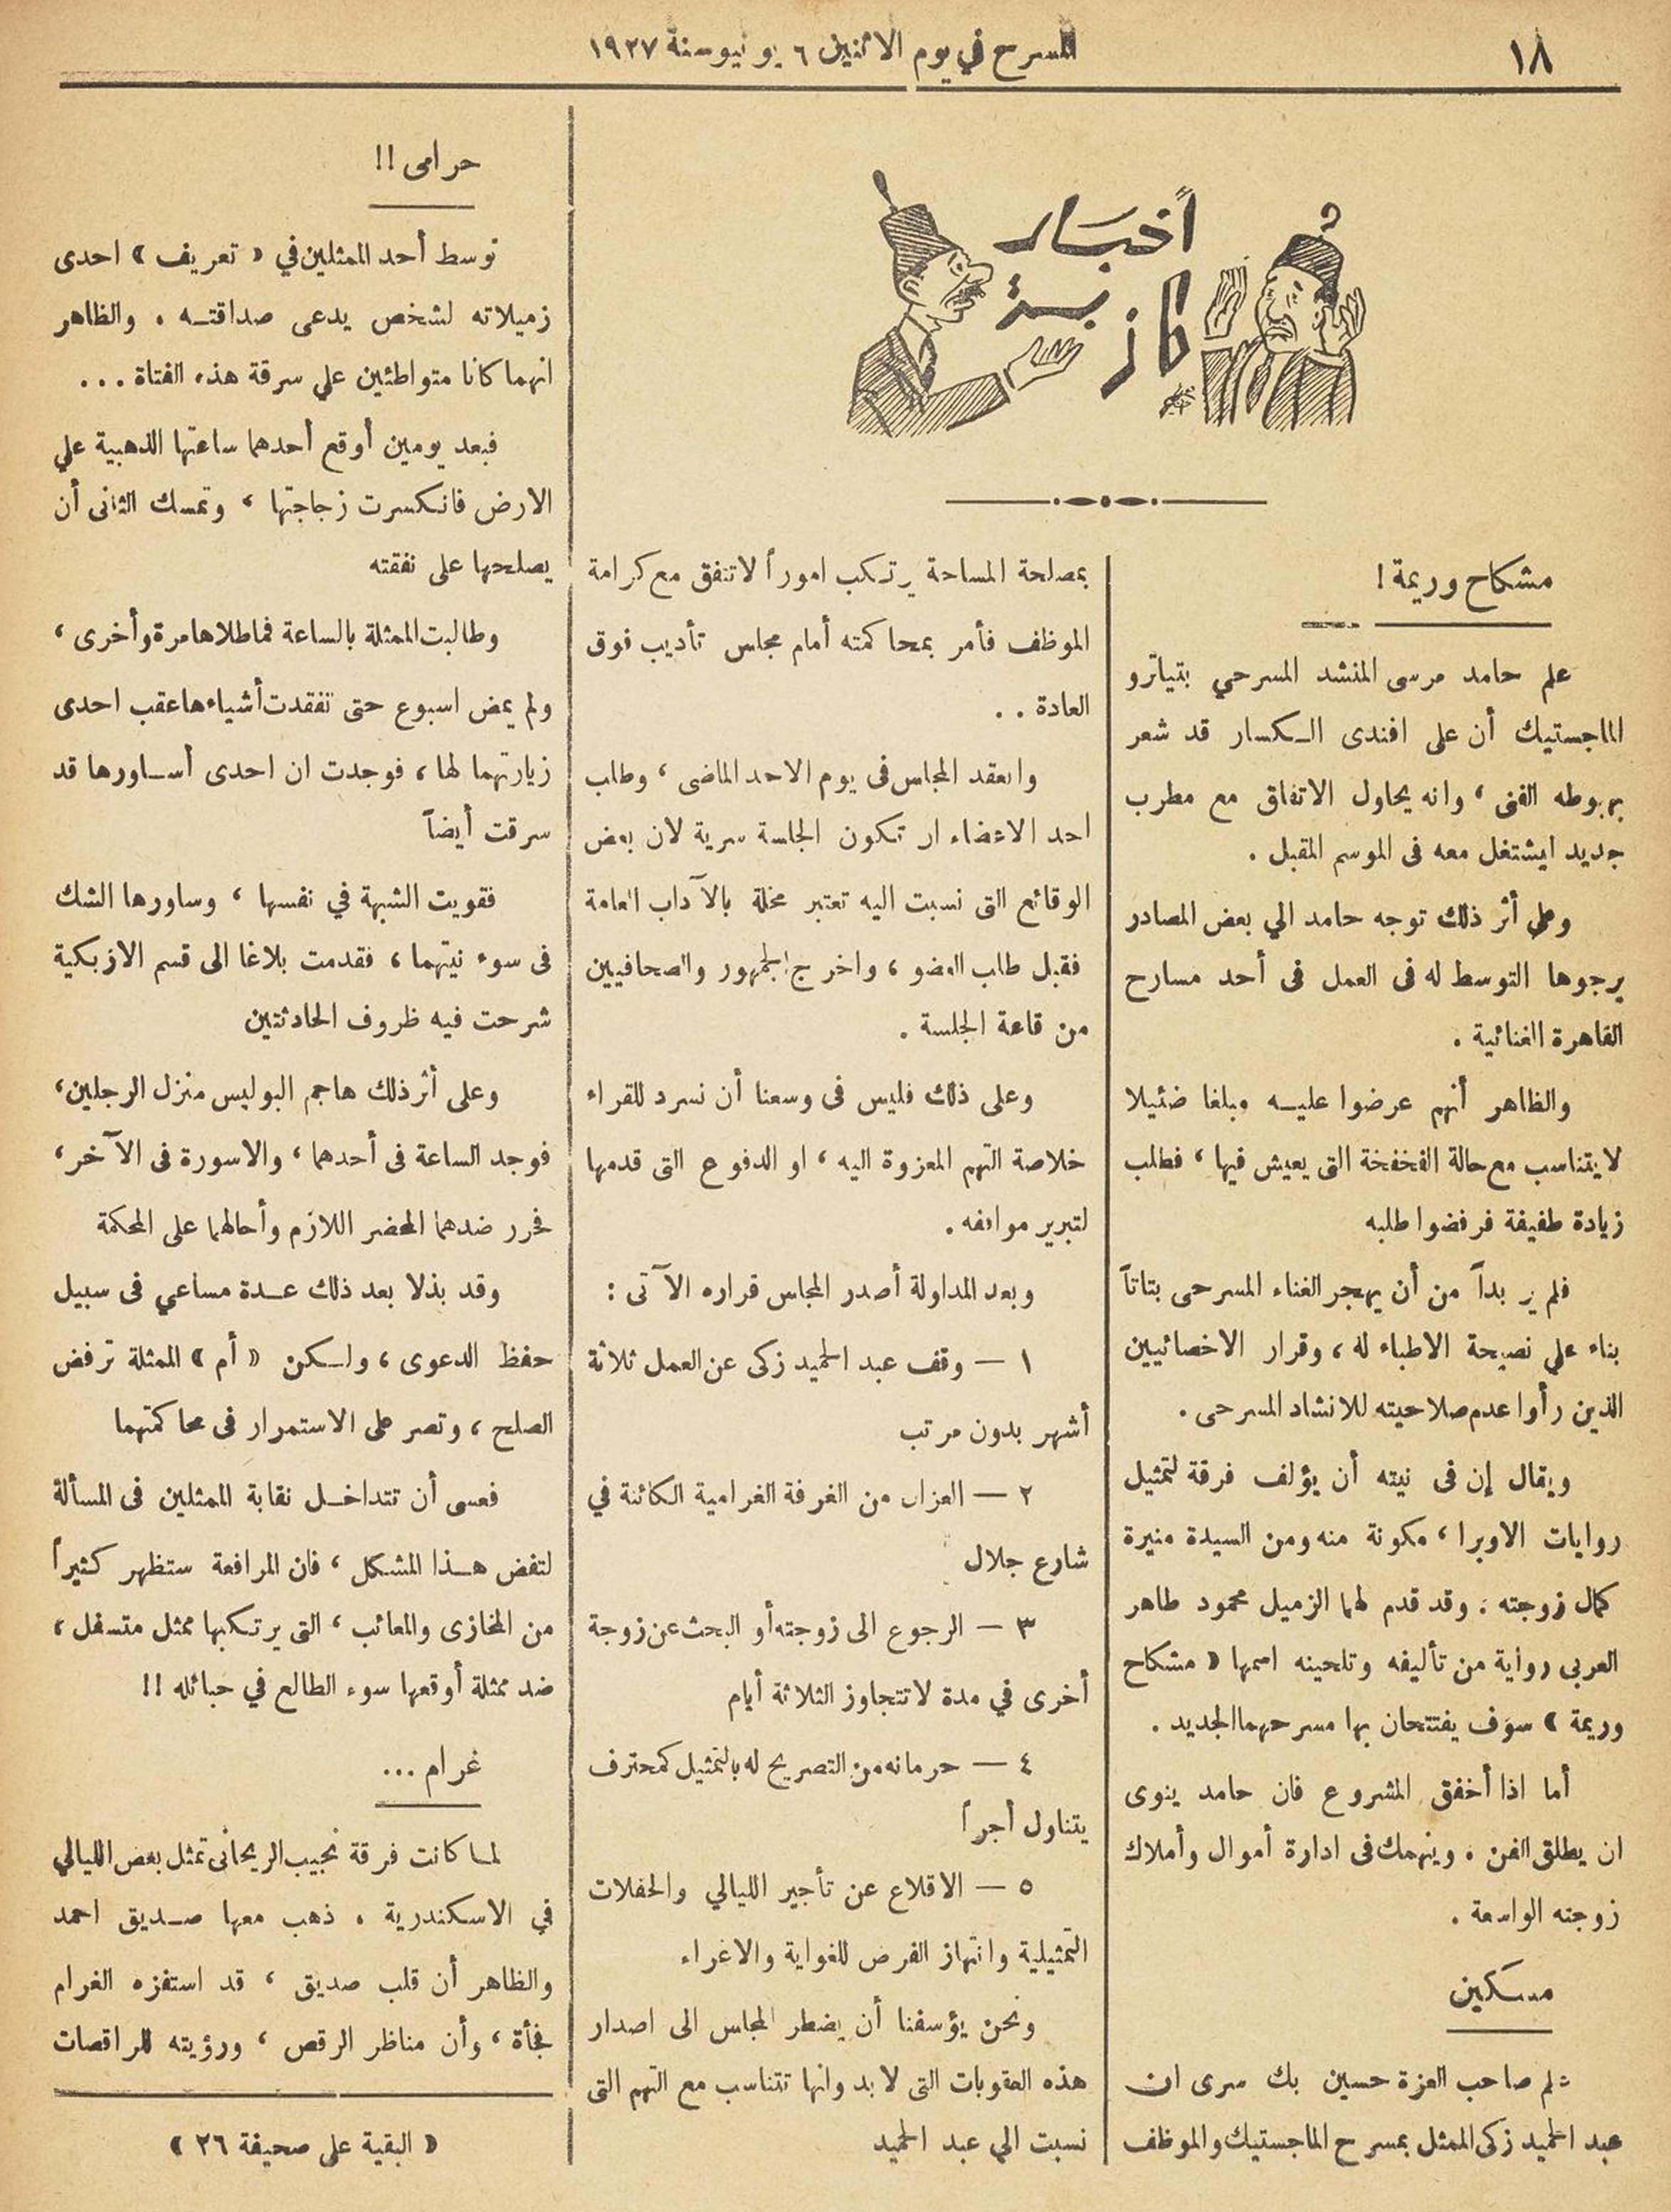 ١٨
المسرح في يوم الاثنين ٦ يونيو سنة ١٩٢٧
أخبار
كازبة
مشكاح وريمة !
علم حامد مرسى المنشد المسرحي بتياترو
الماجستيك أن على افندى الكسار قد شعر
بهبوطه الفنى ، وانه يحاول الاتفاق مع مطرب
جديد ليشتغل معه فى الموسم المقبل .
وعلى أثر ذلك توجه حامد الي بعض المصادر
يرجوها التوسط له فى العمل فى أحد مسارح
القاهرة الغنائية .
والظاهر أنهم عرضوا عليه مبلغا ضئيلا
لا يتناسب مع حالة الفخفخة التى يعيش فيها ، فطلب
زيادة طفيفة فرفضوا طلبه
فلم ير بداً من أن يهجر الغناء المسرحى بتاتاً
بناء علي نصيحة الاطباء له ، وقرار الاخصائيين
الذين رأوا عدم صلاحيته للانشاد المسرحى .
ويقال إن فى نيته أن يؤلف فرقة لتمثيل
روايات الاوبرا ، مكونة منه ومن السيدة منيرة
كمال زوجته . وقد قدم لهما الزميل محمود طاهر
العربى رواية من تأليفه وتلحينه اسمها « مشكاح
وريمة » سوف يفتتحان بها مسرحهما الجديد .
أما اذا أخفق المشروع فان حامد ينوى
ان يطلق الفن . وينهمك فى ادارة أموال وأملاك
زوجته الواسعة .
مسكين
علم صاحب العزة حسين بك سرى ان
عبد الحميد زكى الممثل بمسرح الماجستيك والموظف
بمصلحة المساحة يرتكب اموراً لا تتفق مع كرامة
الموظف فأمر بمحاكمته أمام مجلس تأديب فوق
العادة . .
وانعقد المجلس فى يوم الاحد الماضى ، وطلب
احد الاعضاء ان تكون الجلسة سرية لان بعض
الوقائع التى نسبت اليه تعتبر مخلة بالآداب العامة
فقبل طلب العضو ، واخرج الجمهور والصحافيين
من قاعة الجلسة .
وعلى ذلك فليس فى وسعنا أن نسرد للقراء
خلاصة التهم المعزوة اليه ، او الدفوع التى قدمها
لتبرير مواقفه .
وبعد المداولة أصدر المجلس قراره الآتى :
١ — وقف عبد الحميد زكى عن العمل ثلاثة
أشهر بدون مرتب
٢ — العزال من الغرفة الغرامية الكائنة في
شارع جلال
٣ — الرجوع الى زوجته أو البحث عن زوجة
أخرى في مدة لا تتجاوز الثلاثة أيام
٤ — حرمانه من التصريح له بالتمثيل كمحترف
يتناول أجراً
٥ — الاقلاع عن تأجير الليالي والحفلات
التمثيلية وانتهاز الفرص للغواية والاغراء
ونحن يؤسفنا أن يضطر المجلس الى اصدار
هذه العقوبات التى لا بد وانها تتناسب مع التهم التى
نسبت الي عبد الحميد
حرامى !!
توسط أحد الممثلين في « تعريف » احدى
زميلاته لشخص يدعى صداقته . والظاهر
انهما كانا متواطئين علي سرقة هذه الفتاة ...
فبعد يومين أوقع أحدهما ساعتها الذهبية علي
الارض فانكسرت زجاجتها ، وتمسك الثانى أن
يصلحها على نفقته
وطالبت الممثلة بالساعة فماطلاها مرة وأخرى ،
ولم يمض اسبوع حتى تفقدت أشياءها عقب احدى
زيارتهما لها ، فوجدت ان احدى أساورها قد
سرقت أيضاً
فقويت الشبهة في نفسها ، وساورها الشك
فى سوء نيتهما ، فقدمت بلاغا الى قسم الازبكية
شرحت فيه ظروف الحادثتين
وعلى أثر ذلك هاجم البوليس منزل الرجلين ،
فوجد الساعة فى أحدهما ، والاسورة فى الآخر ،
فحرر ضدهما المحضر اللازم وأحالهما على المحكمة
وقد بذلا بعد ذلك عدة مساعي فى سبيل
حفظ الدعوى ، ولكن « أم » الممثلة ترفض
الصلح ، وتصر على الاستمرار فى محاكمتهما
فعسى أن تتداخل نقابة الممثلين فى المسألة
لتفض هذا المشكل ، فان المرافعة ستظهر كثيراً
من المخازى والمعائب ، التى يرتكبها ممثل متسفل ،
ضد ممثلة أوقعها سوء الطالع في حبائله !!
غرام ...
لما كانت فرقة نجيب الريحانى تمثل بعض الليالي
في الاسكندرية . ذهب معها صديق احمد
والظاهر أن قلب صديق ، قد استفزه الغرام
فجأة ، وأن مناظر الرقص ، ورؤيته للراقصات
« البقية على صحيفة ٢٦ »